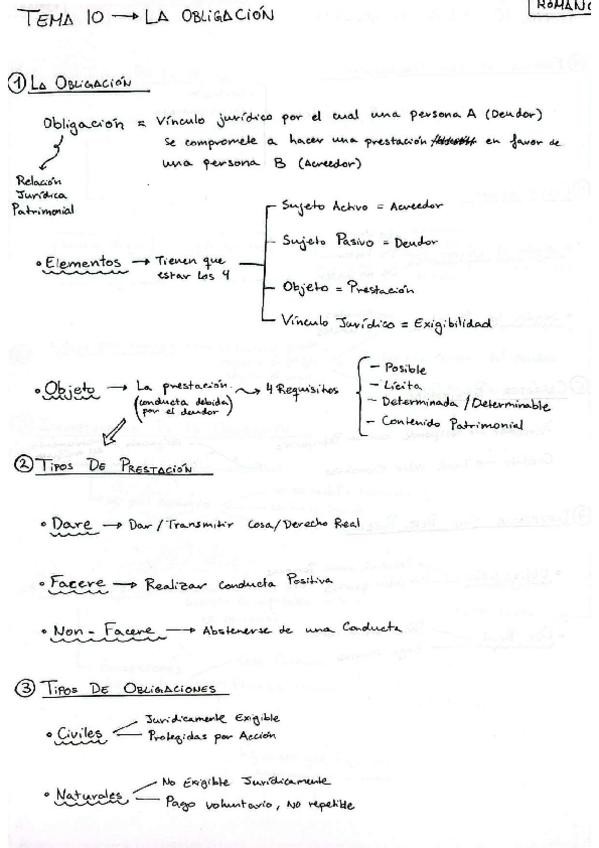 TEMA 10 → LA OBLIGACIÓN
ROMANO
① LA OBLIGACIÓN
Obligación = Vínculo jurídico por el cual una persona A (Deudor)
se compromete a hacer una prestación en favor de
una persona B (Acreedor)
Relación
Jurídica
Patrimonial
• Elementos → Tienen que
estar los 4
Sujeto Activo = Acreedor
Sujeto Pasivo = Deudor
Objeto = Prestación
Vínculo Jurídico = Exigibilidad
• Objeto → La prestación
(conducta debida
por el deudor)
4 Requisitos
- Posible
- Lícita
- Determinada / Determinable
- Contenido Patrimonial
② TIPOS DE PRESTACIÓN
• Dare → Dar / Transmitir Cosa/Derecho Real
• Facere → Realizar conducta Positiva
• Non-Facere → Abstenerse de una Conducta
③ TIPOS DE OBLIGACIONES
• Civiles
Juridicamente Exigible
Protegidas por Acción
• Naturales
No Exigible Jurídicamente
Pago voluntario, No repetible